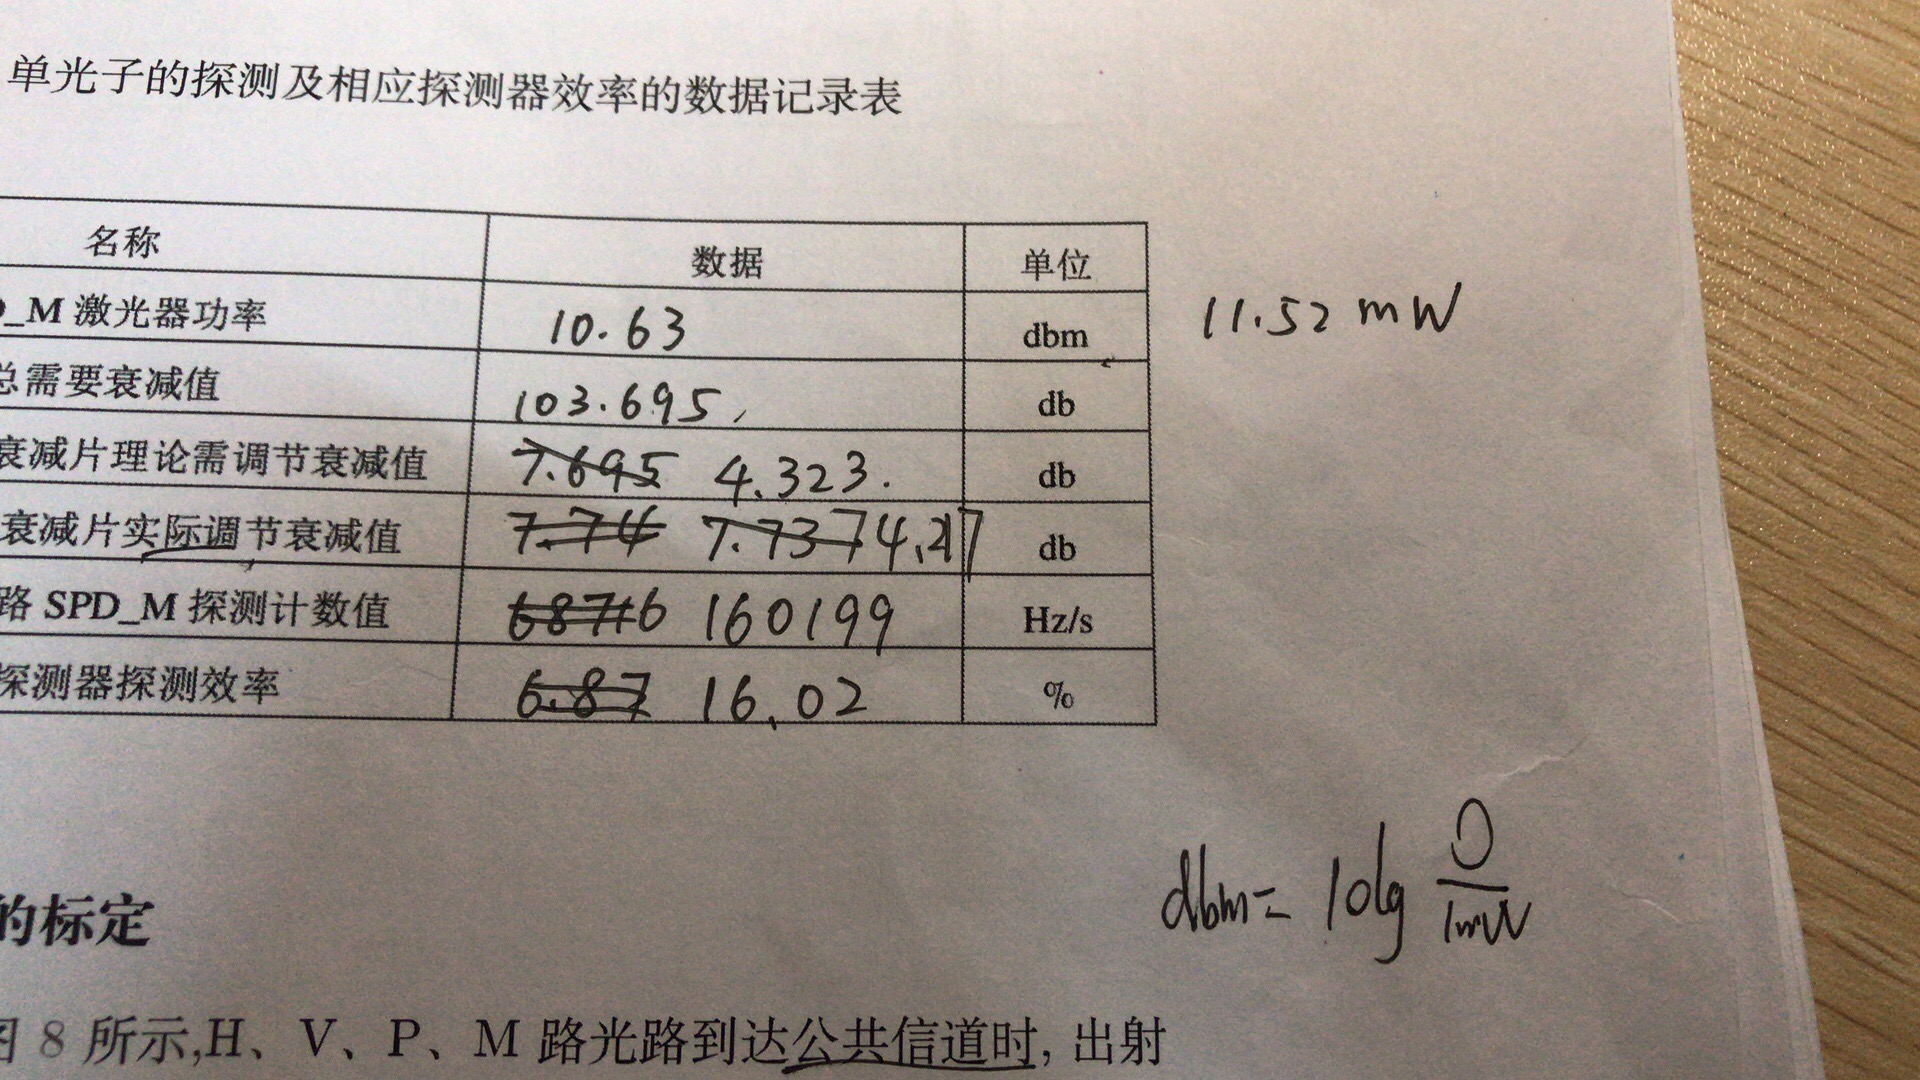 单光子的探测及相应探测器效率的数据记录表
名称 数据 单位
D_M 激光器功率 10.63 dbm 11.52 mW
总需要衰减值 103.695, db
衰减片理论需调节衰减值 7.695 4.323. db
衰减片实际调节衰减值 7.74 7.737 4.217 db
路 SPD_M 探测计数值 68716 160199 Hz/s
探测器探测效率 6.87 16.02 %
dbm = 10lg 0/1mW
的标定
图 8 所示,H、V、P、M 路光路到达公共信道时, 出射